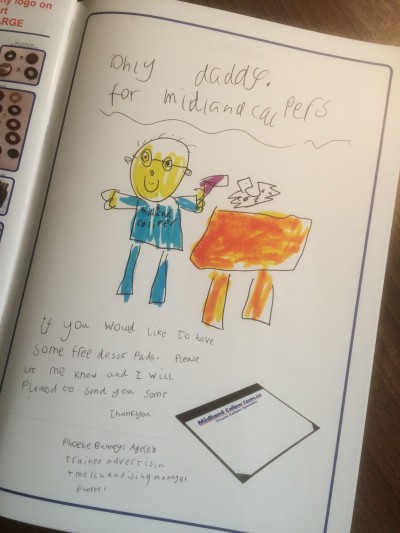 ny logo on
rt
ARGE
Only daddy.
for midland cal pers
midland
caliper
if you would like to have
some free desck Pads. Please
let me know and I will
Pleased to send you some
Thankyou
Midland Caliper Centre Ltd
Truck Caliper Specialist
Phoebe
trainee advertisin
+ merchandising manager